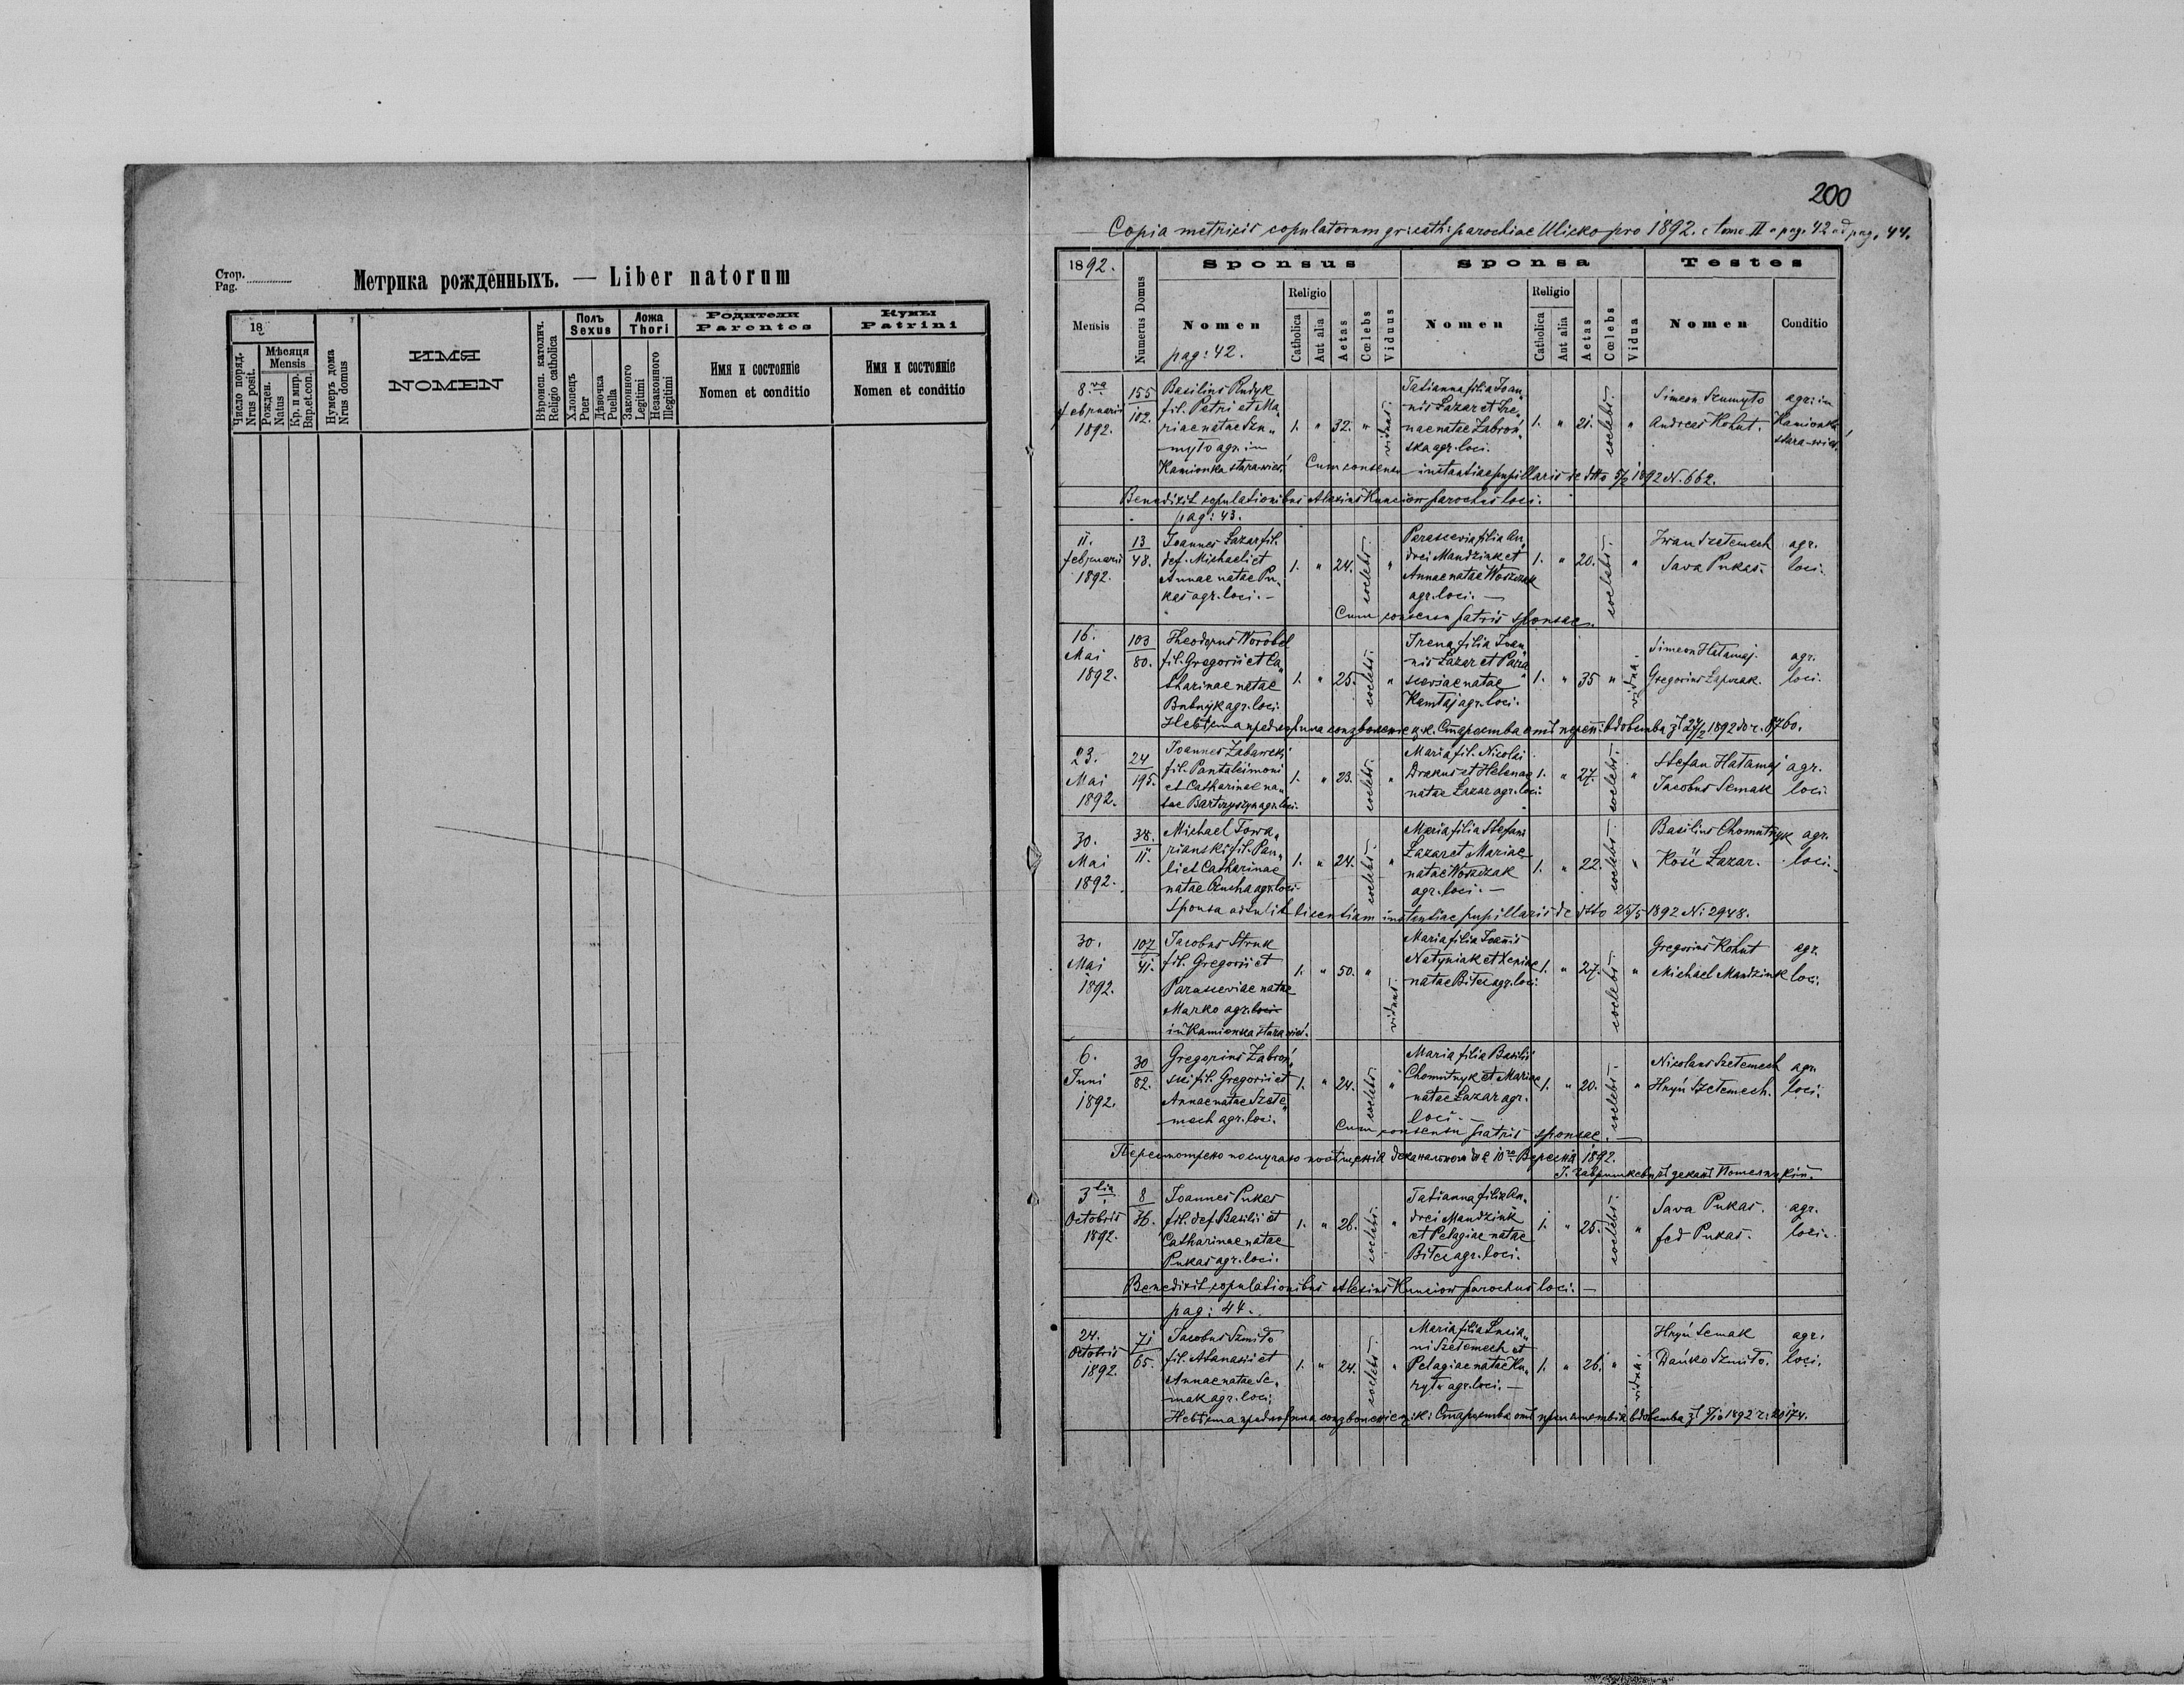 Стор.
Pag.
Метрика рожденныхъ. — Liber natorum
18
Число поряд.
Nrus posit.
Мѣсяця
Mensis
Рожден.
Natus
Кр. и мир.
Bap.et.con.
Нумеръ дома
Nrus domus
ИМЯ
NOMEN
Вѣроисп. католич.
Religio catholica
Полъ
Sexus
Хлопецъ
Puer
Дѣвочка
Puella
Ложа
Thori
Законного
Legitimi
Незаконного
Illegitimi
Родители
Parentes
Имя и состоянiе
Nomen et conditio
Кумы
Patrini
Имя и состоянiе
Nomen et conditio
200
Copia metricis copulatorum gr: cath: parochiae Ulicko pro 1892. e tomo II a pag. 42 ad pag. 44.
1892.
Mensis
Numerus Domus
Sponsus
Nomen
pag: 42.
Religio
Catholica
Aut alia
Aetas
Cœlebs
Viduus
Sponsa
Nomen
Religio
Catholica
Aut alia
Aetas
Cœlebs
Vidua
Testes
Nomen
Conditio
8va
februarii
1892.
155
102.
Basilius Rudyk
fil. Petri et Ma„
riae natae Szu„
myło agr. in
Kamionka starawieś.
1. „ 32. „ viduus.
Tatianna filia Joan„
nis Lazar et Ire„
nae natae Zabroń„
ska agr. loci.
1. „ 21. coelebs. „
Simeon Szumyło
Andreas Kohut.
agr: in
Kamionka
stara-wieś.
Cum consensu instantiae pupillaris de dtto 5/2 1892 N. 662.
Benedixit copulationibus Alexius Kunciow parochus loci.
pag: 43.
11.
februarii
1892.
13
48.
Joannes Lazar fil.
def. Michaeli et
Annae natae Pu„
kas agr. loci. —
1. „ 24. coelebs. „
Parascevia filia An„
drei Mandziuk et
Annae natae Woszczak
agr. loci. —
1. „ 20. coelebs. „
Iwan Szetemech
Sava Pukas.
agr.
loci.
Cum consensu patris sponsae.
16.
Mai
1892.
103
80.
Theodorus Worobel
fil. Gregorii et Ca„
tharinae natae
Bubnyk agr. loci.
1. „ 25. coelebs. „
Irena filia Joan„
nis Lazar et Para„
sceviae natae
Kamtaj agr. loci.
1. „ 35 „ vidua.
Simeon Hatamaj.
Gregorius Łapczak.
agr.
loci.
23.
Mai
1892.
24
195.
Joannes Zabawski
fil. Pantaleimoni
et Catharinae na„
tae Bartczyszyn agr. loci.
1. „ 23. coelebs. „
Maria fil. Nicolai
Drakus et Helenae
natae Lazar agr. loci.
1. „ 27. coelebs. „
Stefan Hatamaj
Jacobus Semak
agr.
loci.
30.
Mai
1892.
38.
11.
Michael Towa„
rianski fil. Pau„
li et Catharinae
natae Czucha agr. loci
1. „ 24. coelebs. „
Maria filia Stefani
Lazar et Mariae
natae Woszczak
agr. loci. —
1. „ 22. coelebs. „
Basilius Chomutnyk
Kość Lazar.
agr.
loci.
Sponsa attulit licentiam instantiae pupillaris de dtto 25/5 1892 N: 2948.
30.
Mai
1892.
107
41.
Jacobus Struk
fil. Gregorii et
Parasceviae natae
Marko agr. loci
in Kamionka starawieś.
1. „ 50. „ viduus.
Maria filia Joannis
Natyniak et Xeniae
natae Bitec agr. loci.
1. „ 27. coelebs. „
Gregorius Kohut
Michael Mandziuk
agr.
loci.
6.
Juni
1892.
30
82.
Gregorius Zabroń„
ski fil. Gregorii et
Annae natae Szete„
mech agr. loci.
1. „ 24. coelebs. „
Maria filia Basilii
Chomutnyk et Mariae
natae Lazar agr.
loci. —
1. „ 20. coelebs. „
Nicolaus Szetemech
Hnyń Szetemech.
agr.
loci.
Cum consensu patris sponsae. —
3tia
Octobris
1892.
8
36.
Joannes Pukas
fil. def. Basilii et
Catharinae natae
Pukas agr. loci.
1. „ 26. coelebs. „
Tatianna filia An„
drei Mandziuk
et Pelagiae natae
Bitec agr. loci.
1. „ 25. coelebs. „
Sava Pukas.
fed Pukas.
agr.
loci.
Benedixit copulationibus Alexius Kunciow parochus loci. —
pag: 44.
24.
Octobris
1892.
71
65.
Jacobus Szmiło
fil. Atanasii et
Annae natae Se„
mak agr. loci.
1. „ 24. coelebs. „
Maria filia Lucia„
ni Szetemech et
Pelagiae natae Ku„
ryło agr. loci. —
1. „ 26. „ vidua.
Hnyń Semak
Dańko Szmiło.
agr.
loci.